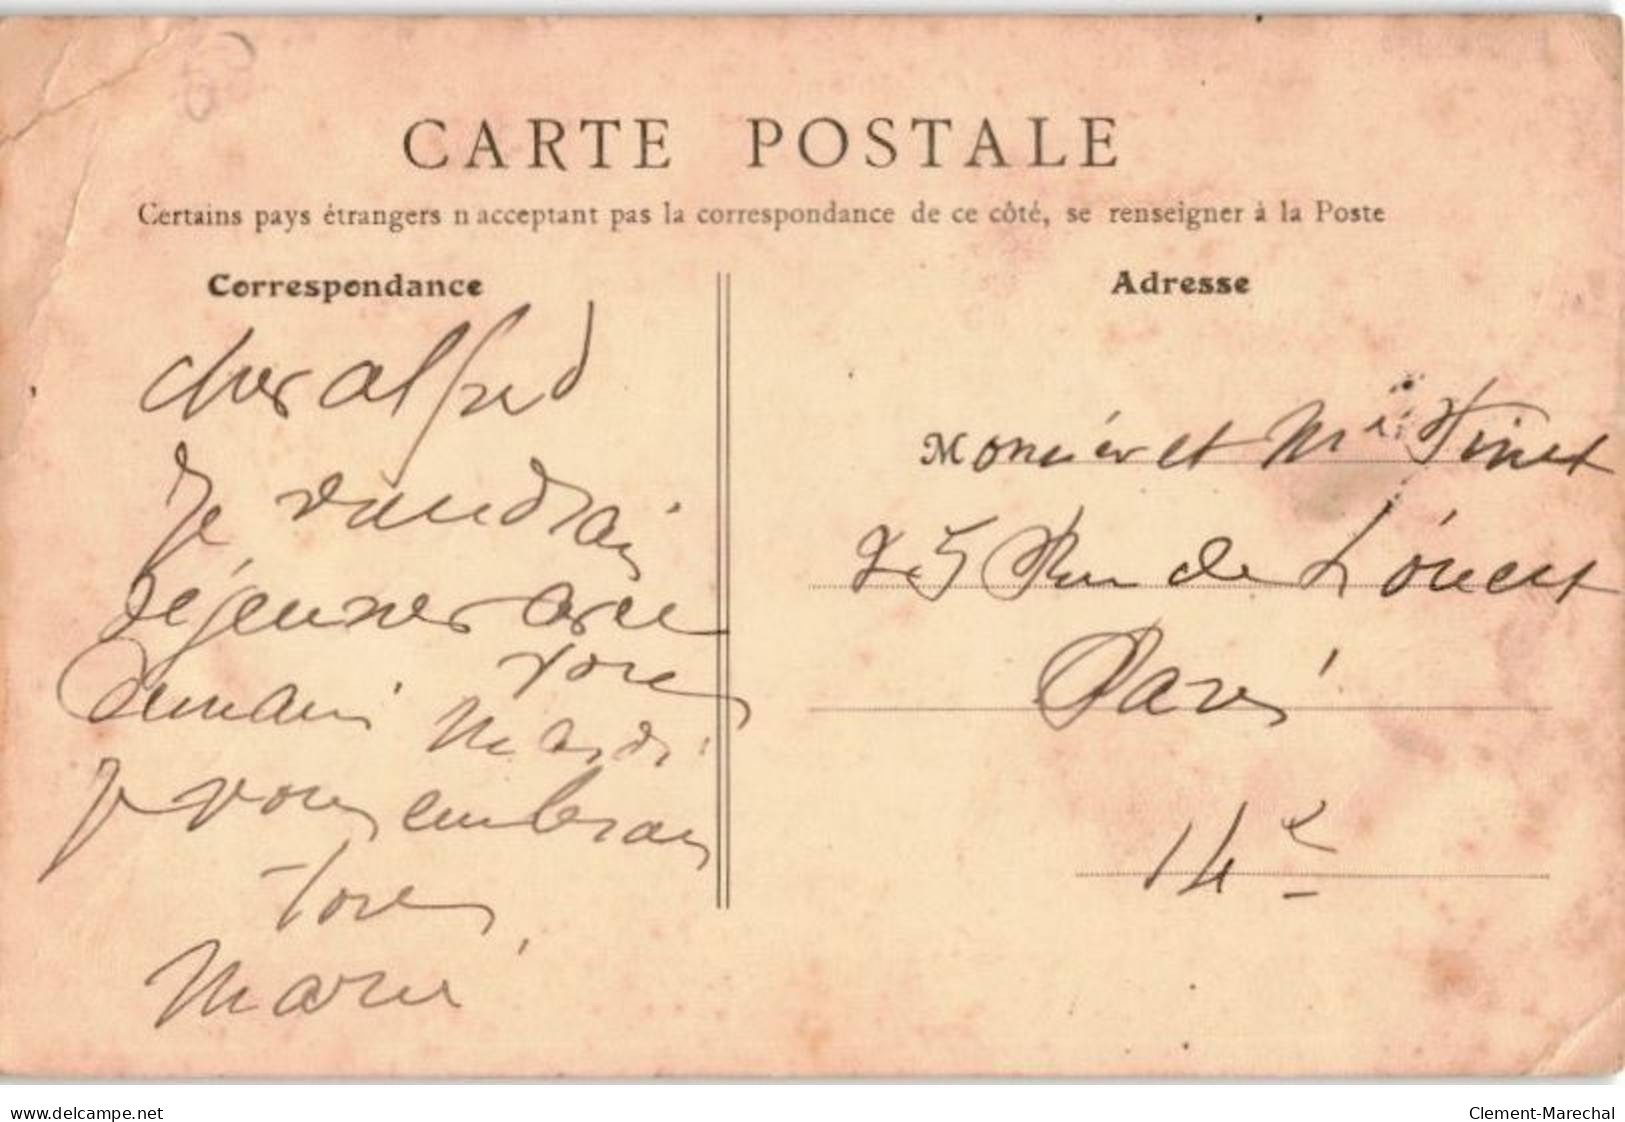 CARTE POSTALE
Certains pays étrangers n acceptant pas la correspondance de ce côté, se renseigner à la Poste
Correspondance
cher alfred
Je viendrai
déjeuner avec
vous
demain Mardi
Je vous embrasse
tous
Marie
Adresse
Monsieur et Me Finet
25 Rue de L'ouest
Paris
14e
www.delcampe.net
Clement-Marechal